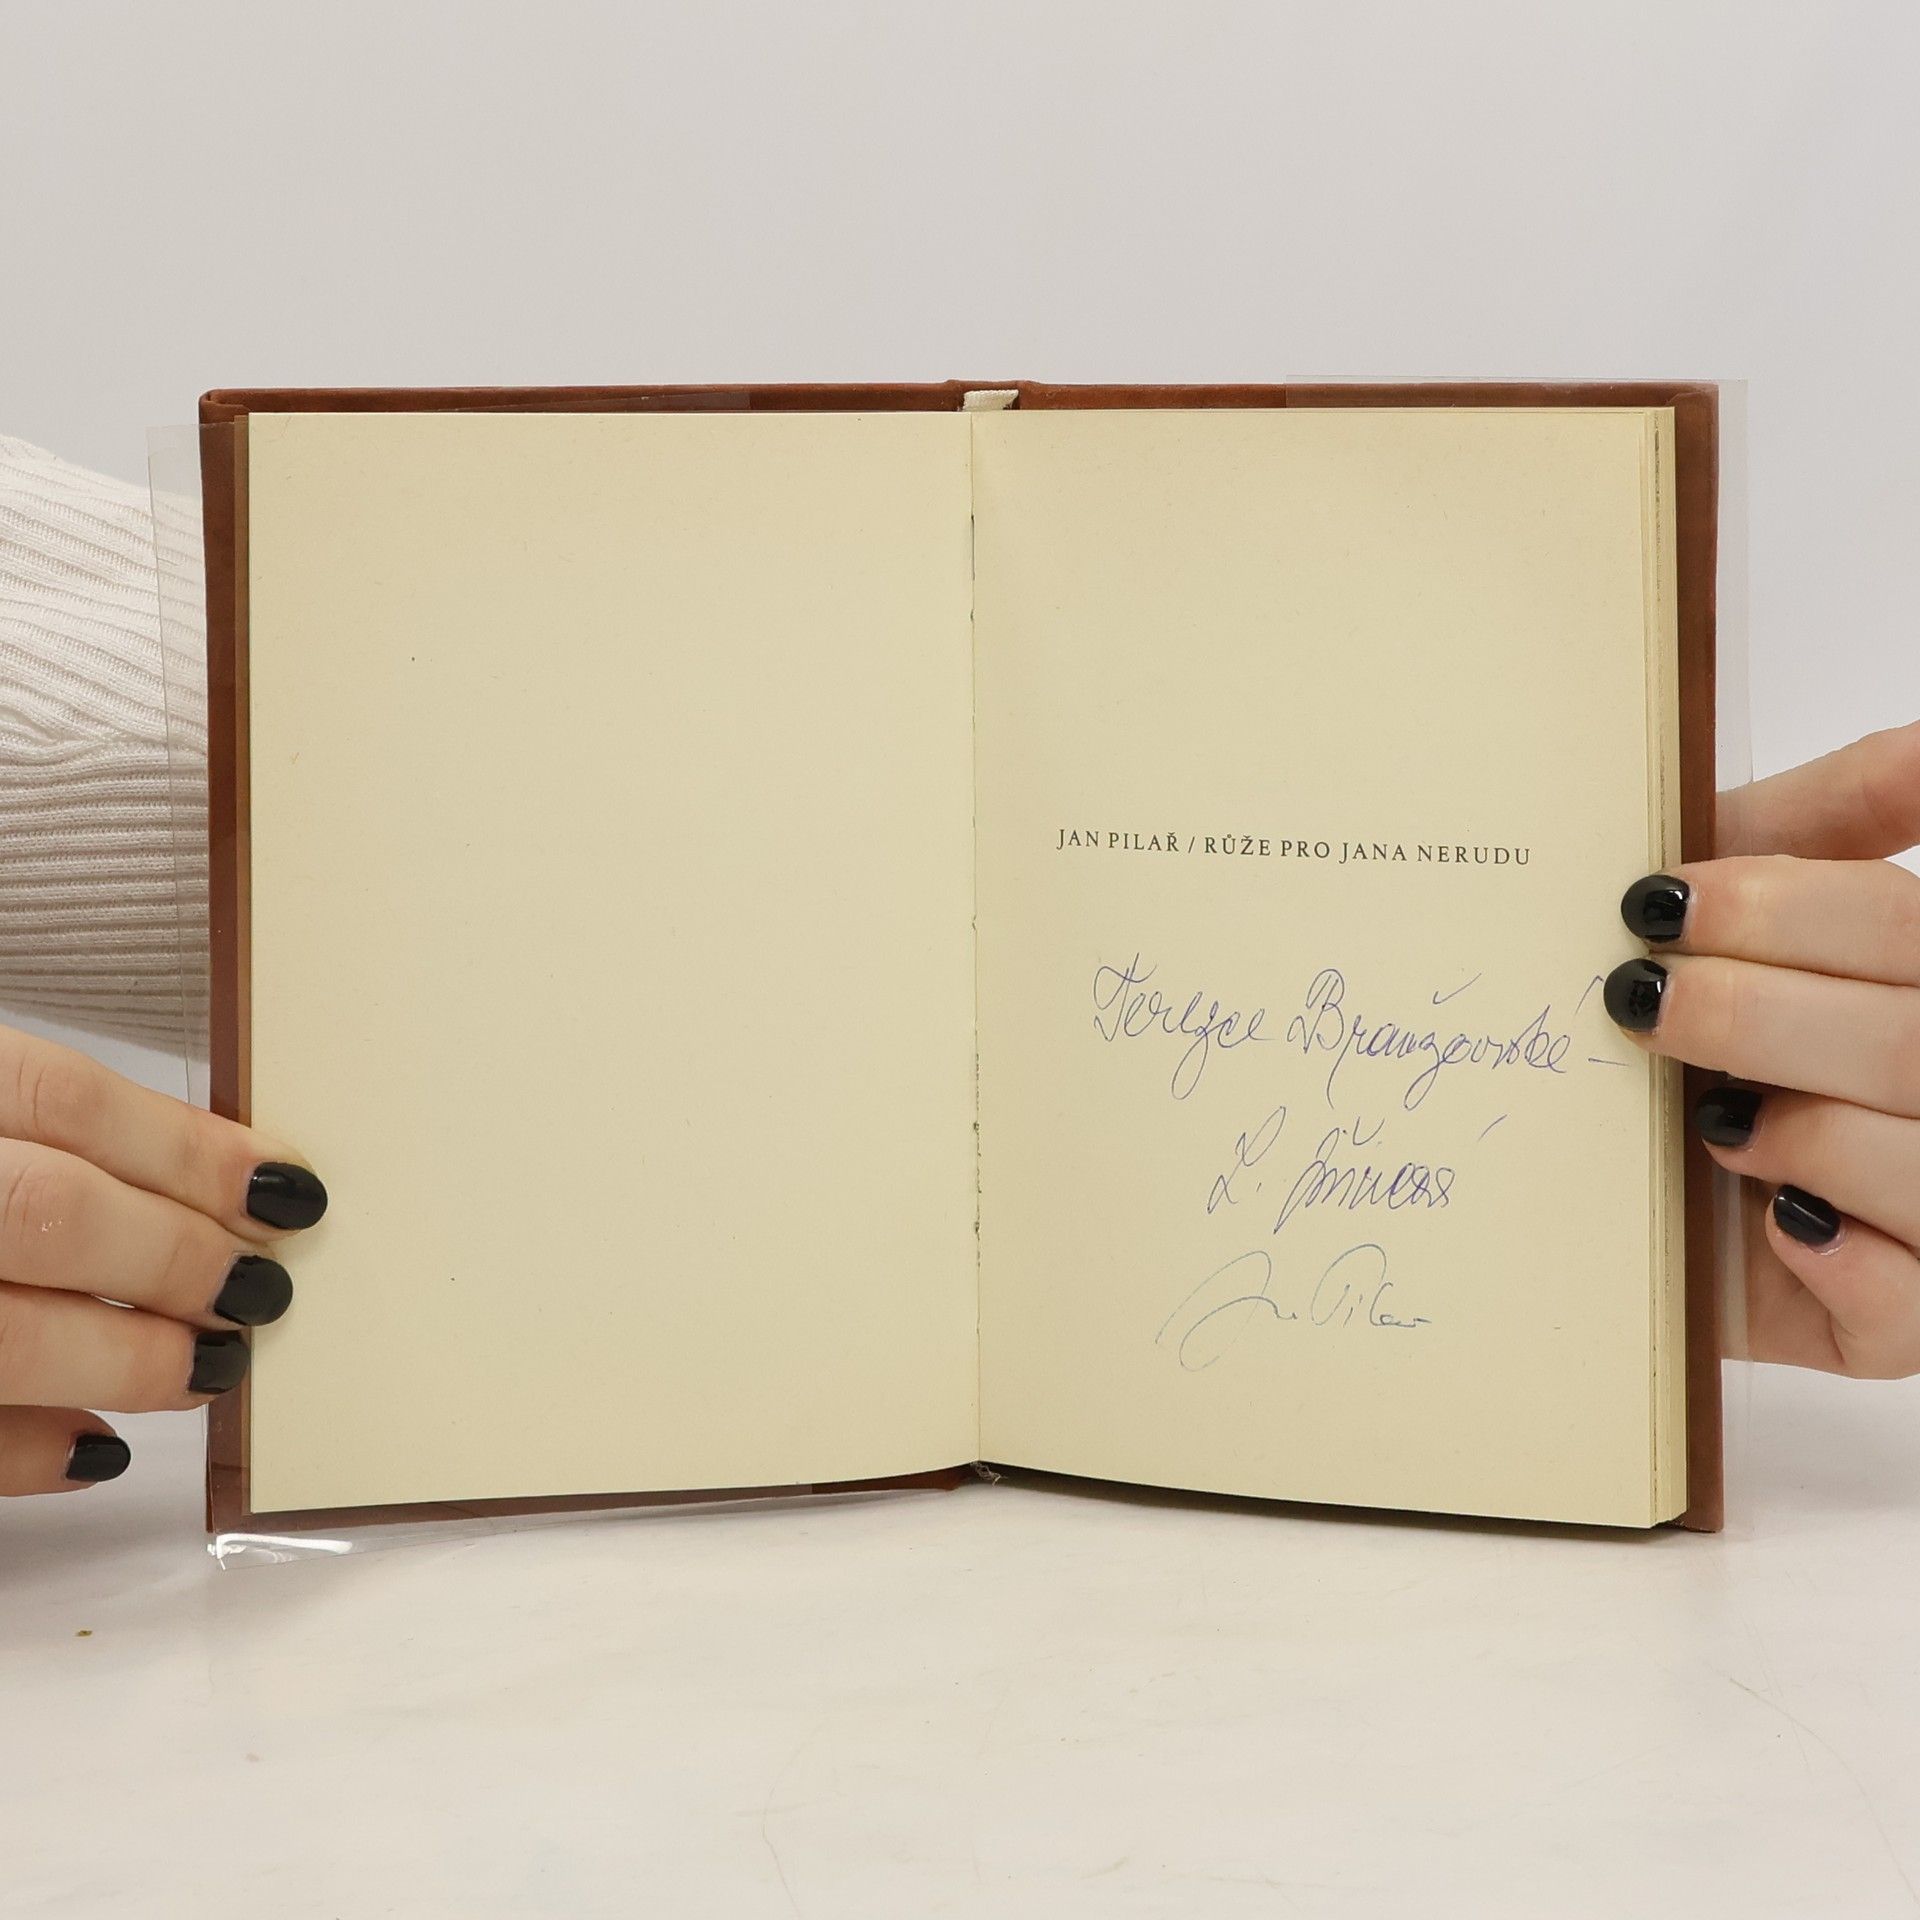 JAN PILAŘ / RŮŽE PRO JANA NERUDU
Terezce Branžovské –
L. Jiřincová
Jan Pilař